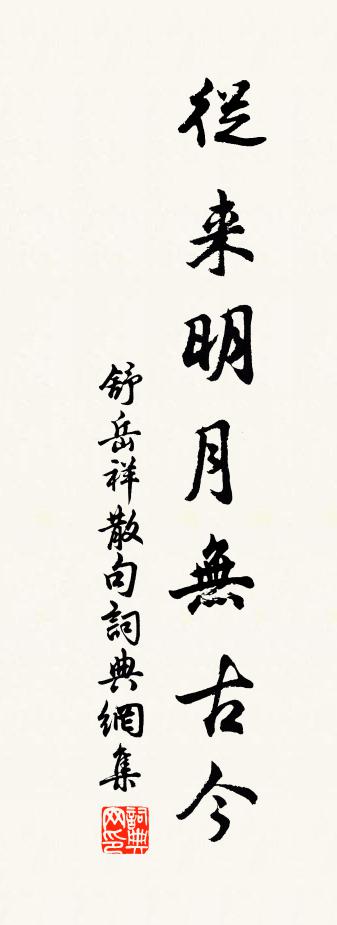 從来明月無古今
舒岳祥散句詞典網集
詞典网印